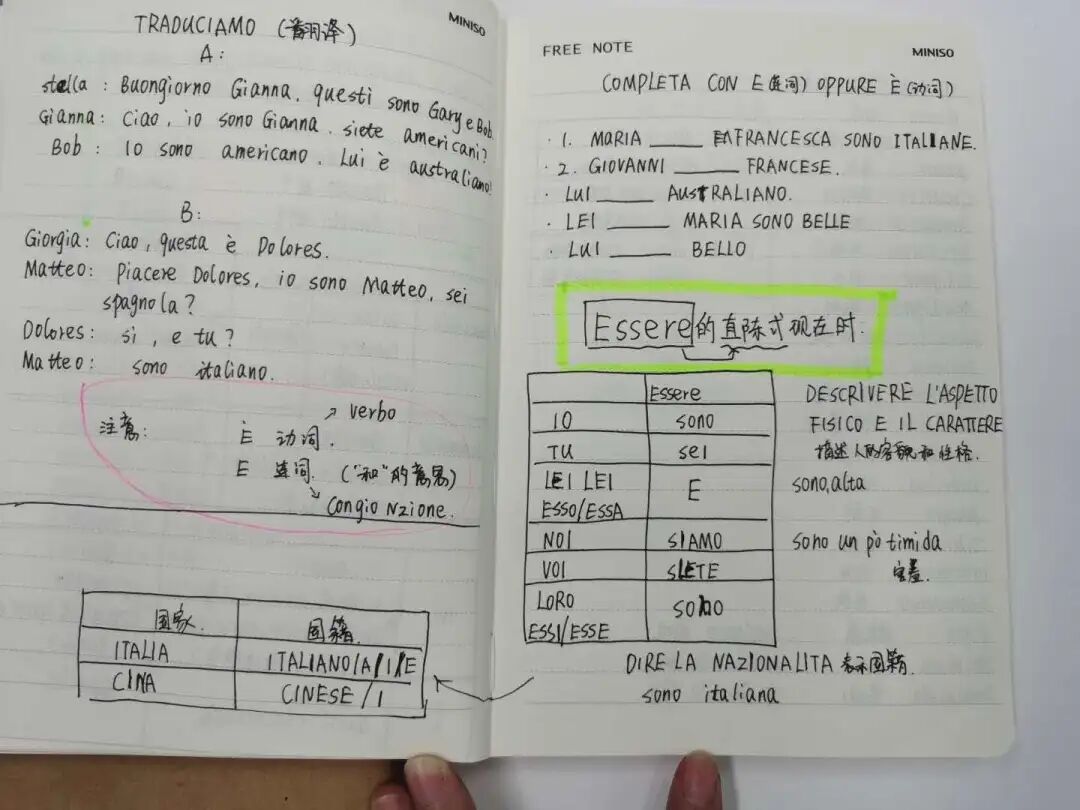 MINISO
TRADUCIAMO (翻译)
A:
stella : Buongiorno Gianna, questi sono Gary e Bob.
Gianna: Ciao, io sono Gianna. siete americani?
Bob : Io sono americano. Lui è australiano!
B:
Giorgia: Ciao, questa è Dolores.
Matteo: Piacere Dolores, io sono Matteo, sei
spagnola?
Dolores: si, e tu?
Matteo: sono italiano.
注意:
verbo
È 动词.
E 连词. ("和"的意思)
Congio Nzione.
国家. 国籍.
ITALIA ITALIANO/A/I/E
CINA CINESE / I
FREE NOTE MINISO
COMPLETA CON E(连词) OPPURE È(动词)
· 1. MARIA _____ FRANCESCA SONO ITALIANE.
· 2. GIOVANNI ______ FRANCESE.
· LUI _____ AUSTRALIANO.
· LEI _____ MARIA SONO BELLE
· LUI _____ BELLO
Essere的直陈式现在时.
Essere
IO sono
TU sei
LEI LEI E
ESSO/ESSA
NOI SIAMO
VOI SIETE
LORO SONO
ESSI/ESSE
DESCRIVERE L'ASPETTO
FISICO E IL CARATTERE
描述人的容貌和性格.
sono,alta
sono un pò timida
害羞.
DIRE LA NAZIONALITA 表示国籍.
sono italiana